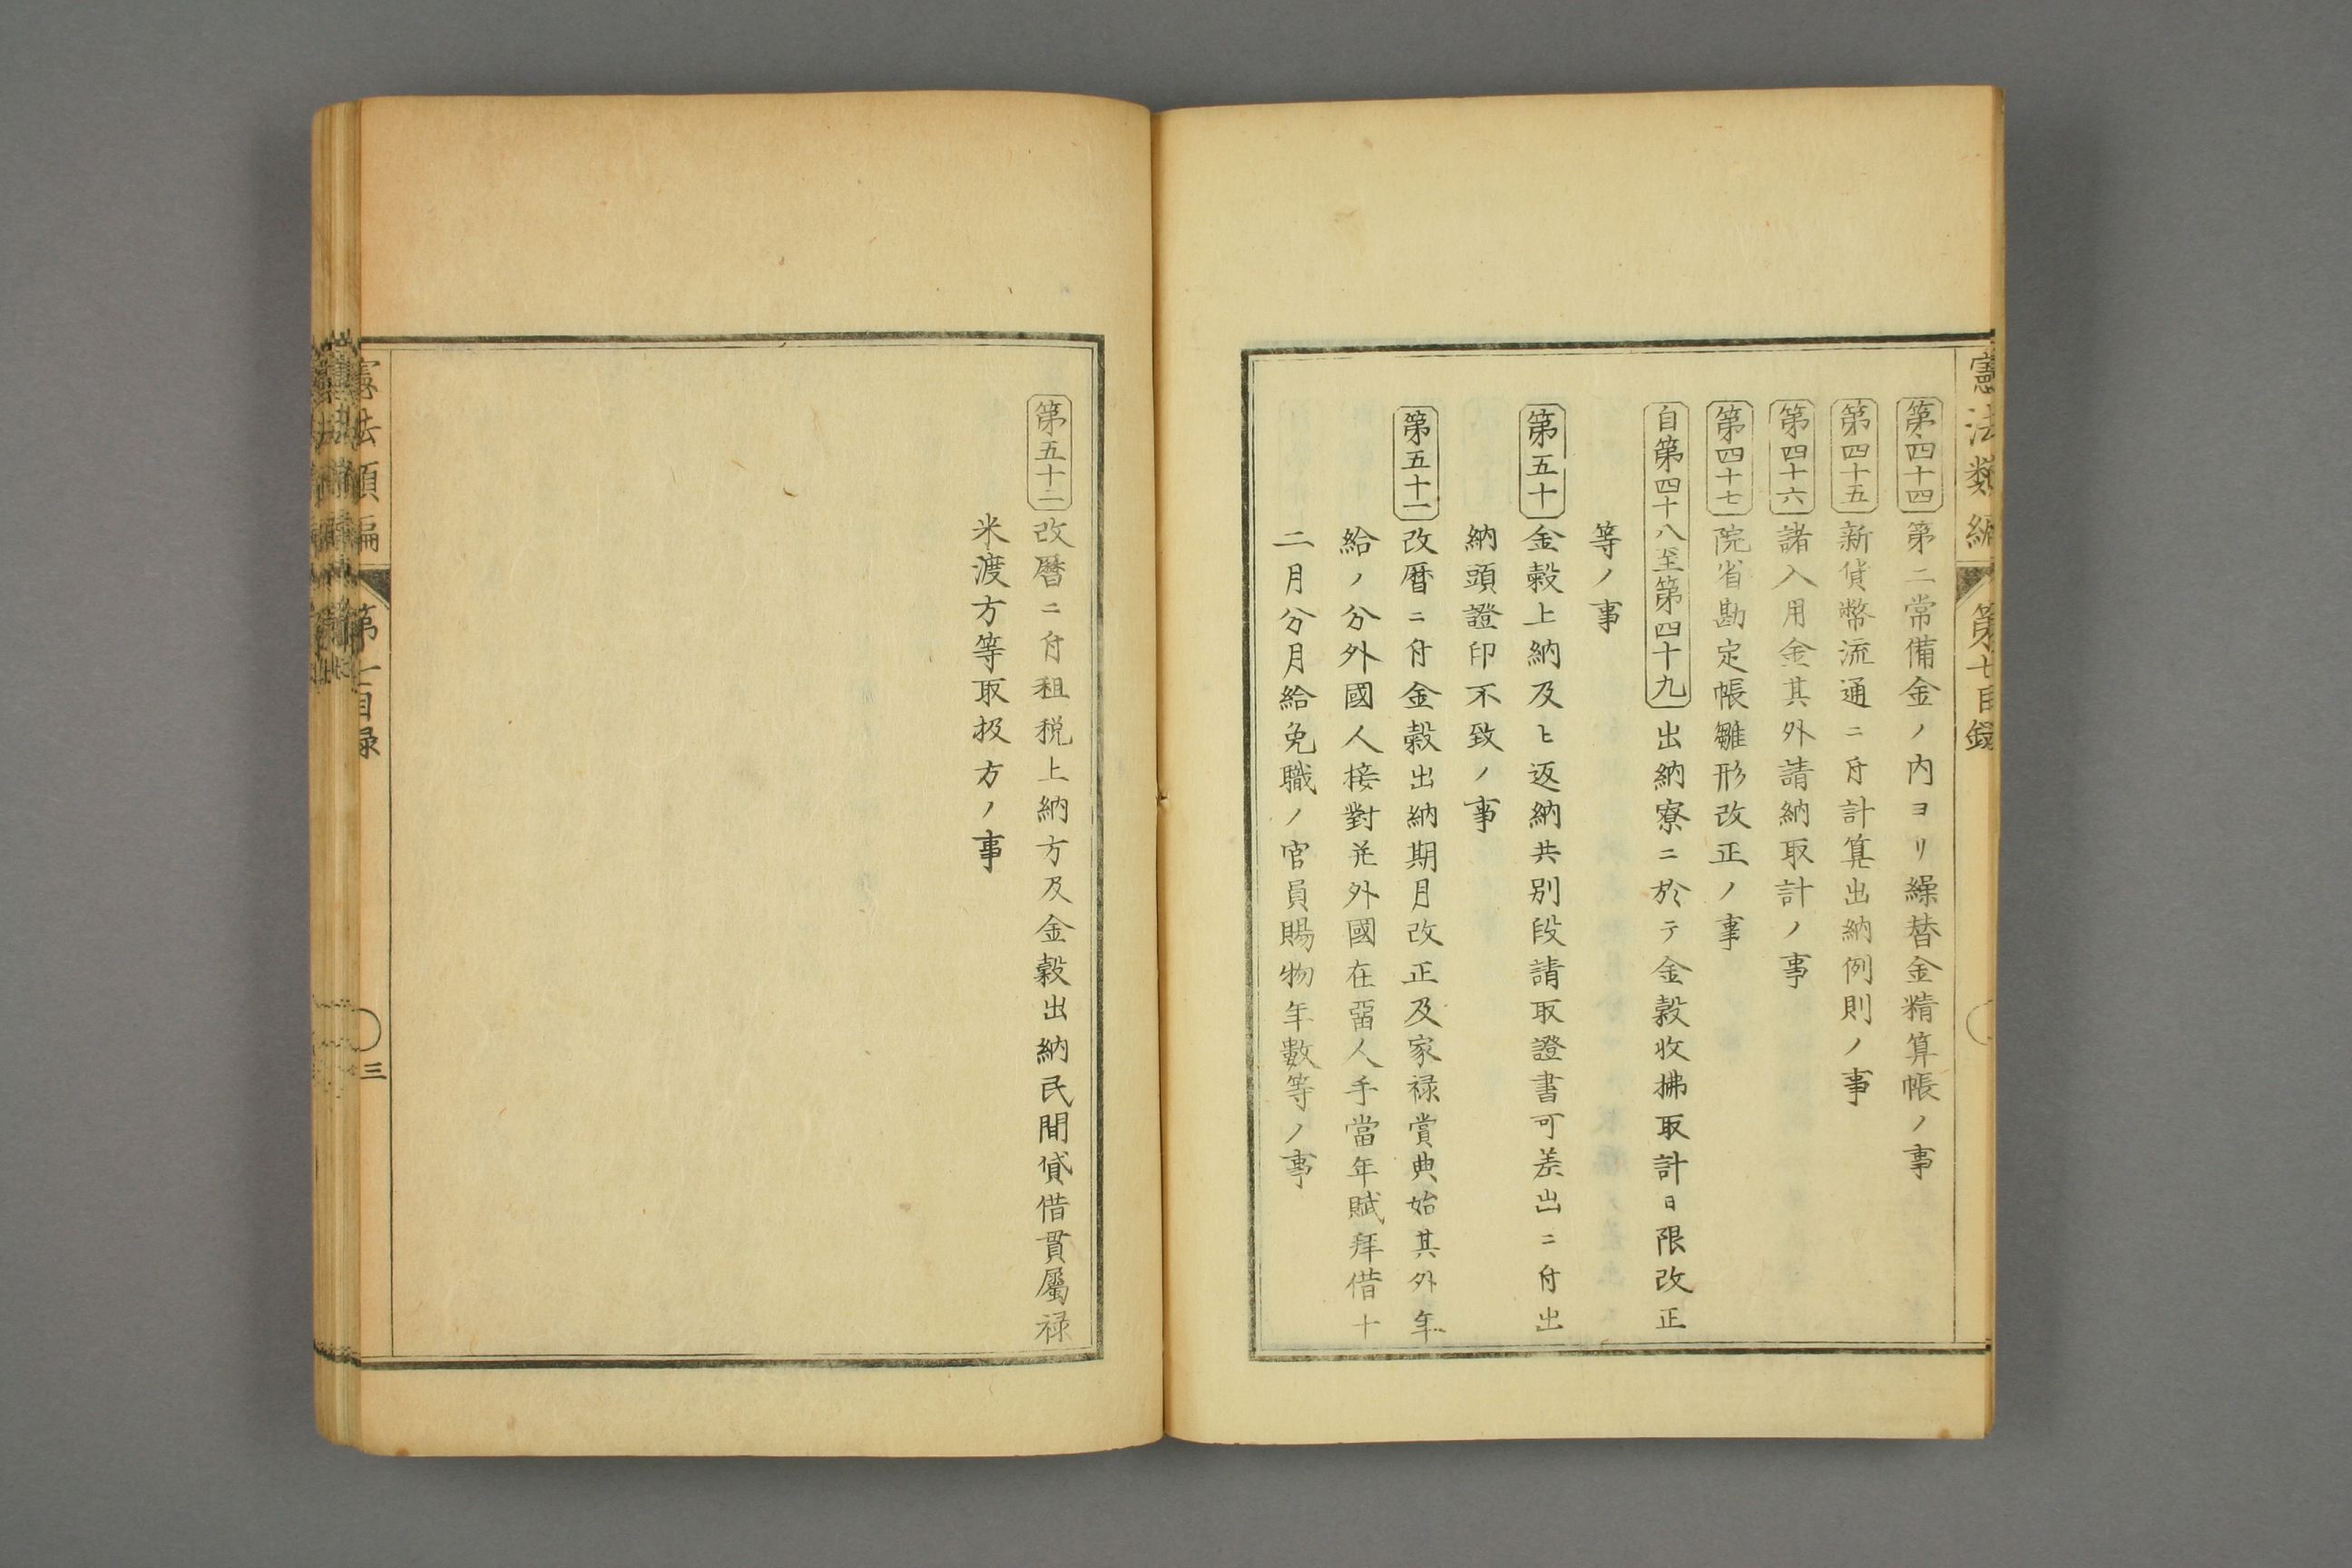 憲法類編 第七目録
第四十四 第二常備金ノ內ヨリ繰替金精算帳ノ事
第四十五 新貨幣流通ニ付計算出納例則ノ事
第四十六 諸入用金其外請納取計ノ事
第四十七 院省勘定帳雛形改正ノ事
自第四十八至第四十九 出納寮ニ於テ金穀收拂取計日限改正
等ノ事
第五十 金穀上納及ヒ返納共別段請取證書可差出ニ付出
納頭證印不致ノ事
第五十一 改曆ニ付金穀出納期月改正及家禄賞典始其外年
給ノ分外國人接對並外國在畱人手當年賦拜借十
二月分月給免職ノ官員賜物年數等ノ事
第五十二 改曆ニ付租税上納方及金穀出納民間貸借貫屬禄
米渡方等取扱方ノ事
憲法類編 第七目録 三